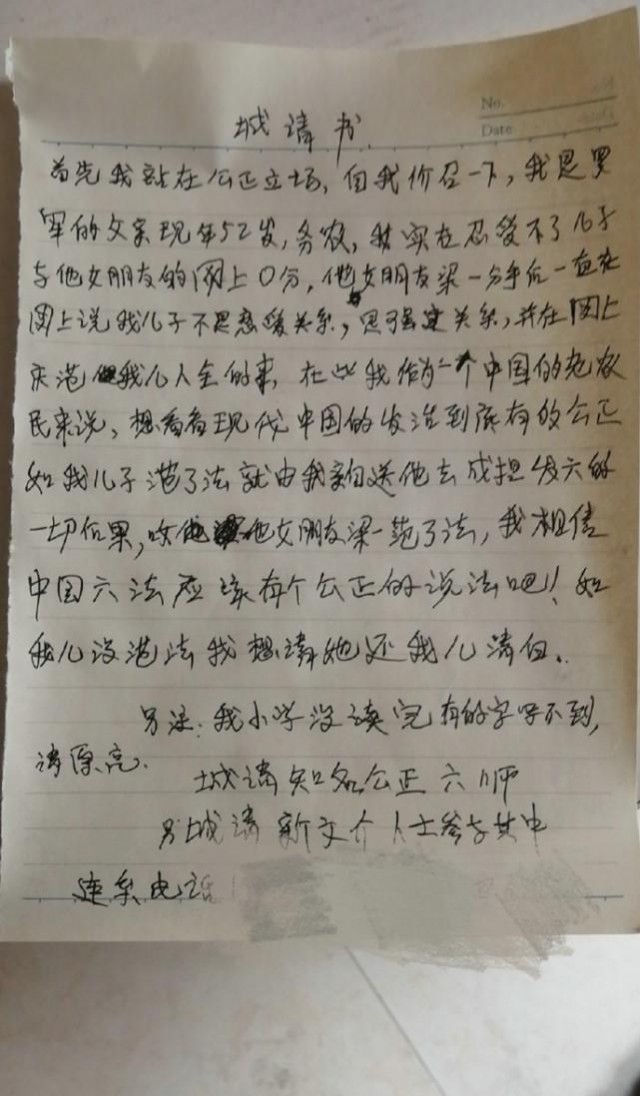 No.
Date
城请书
首先我站在公正立场，自我价召一下，我是罗
军的父亲现年52岁，务农，我实在忍受不了儿子
与他女朋友的网上〇分，他女朋友梁一分手后一直在
网上说我儿子不是恋爱关系，是强迫关系，并在网上
我儿人生的事，在此我作为一个中国的老农
民来说，想看看现代中国的发治到底有的公正
如我儿子范了法就由我亲自送他去成担发六的
一切后果，他女朋友梁一范了法，我相信
中国六法应该有个公正的说法吧！如
我儿没范法我想请她还我儿清白。
另注：我小学没读完有的字写不到，
请原亮。
城请知名公正六师
另城请新文介人士参与其中
连系电话